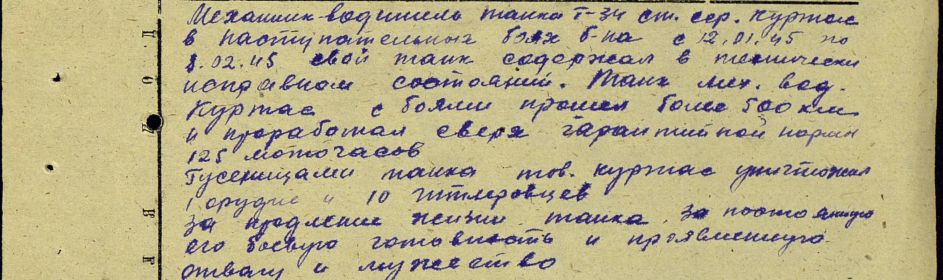 Механик-водитель танка Т-34 ст. сер. Куртас
в наступательных боях б-на с 12.01.45 по
8.02.45 свой танк содержал в технически
исправном состоянии. Танк мех. вод.
Куртас с боями прошел более 500 км
и проработал сверх гарантийной норми
125 моточасов
Гусеницами танка тов. Куртас уничтожил
1 орудие и 10 гитлеровцев
За продление жизни танка, за постоянную
его боевую готовность и проявленную
отвагу и мужество